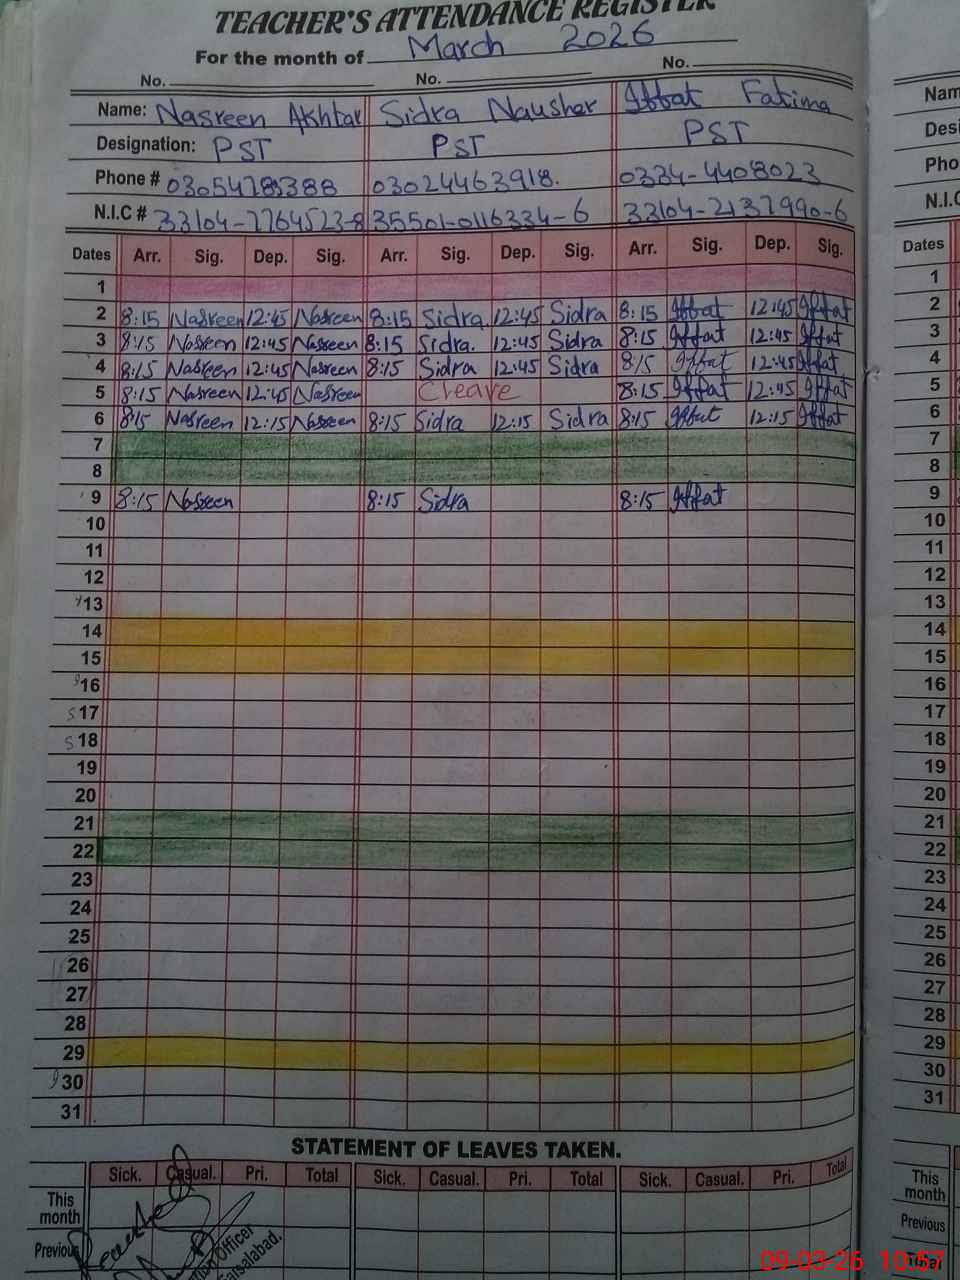 TEACHER'S ATTENDANCE REGISTER
For the month of March 2026
No. No. No.
Name: Nasreen Akhtar Sidra Nausher Iffat Fatima
Designation: PST PST PST
Phone # 03024463918. 0334-4408023
N.I.C # 33104-7764523-8 35501-0116334-6 33104-2137990-6
Dates Arr. Sig. Dep. Sig. Arr. Sig. Dep. Sig. Arr. Sig. Dep. Sig.
1
2 8:15 Nasreen 12:45 Nasreen 8:15 Sidra. 12:45 Sidra 8:15 Iffat 12:45 Iffat
3 8:15 Nasreen 12:45 Nasreen 8:15 Sidra. 12:45 Sidra 8:15 Iffat 12:45 Iffat
4 8:15 Nasreen 12:45 Nasreen 8:15 Sidra 12:45 Sidra 8:15 Iffat 12:45 Iffat
5 8:15 Nasreen 12:45 Nasreen Cleave 8:15 Iffat 12:45 Iffat
6 8:15 Nasreen 12:15 Nasreen 8:15 Sidra 12:15 Sidra 8:15 Iffat 12:15 Iffat
7
8
9 8:15 Nasreen 8:15 Sidra 8:15 Iffat
10
11
12
13
14
15
16
17
18
19
20
21
22
23
24
25
26
27
28
29
30
31
STATEMENT OF LEAVES TAKEN.
Sick. Casual. Pri. Total Sick. Casual. Pri. Total Sick. Casual. Pri. Total
This month
Previous
Officer
Faisalabad.
Nam
Desi
Pho
N.I.C
Dates
1
2
3
4
5
6
7
8
9
10
11
12
13
14
15
16
17
18
19
20
21
22
23
24
25
26
27
28
29
30
31
This month
Previous
Total
09-03-26 10:57